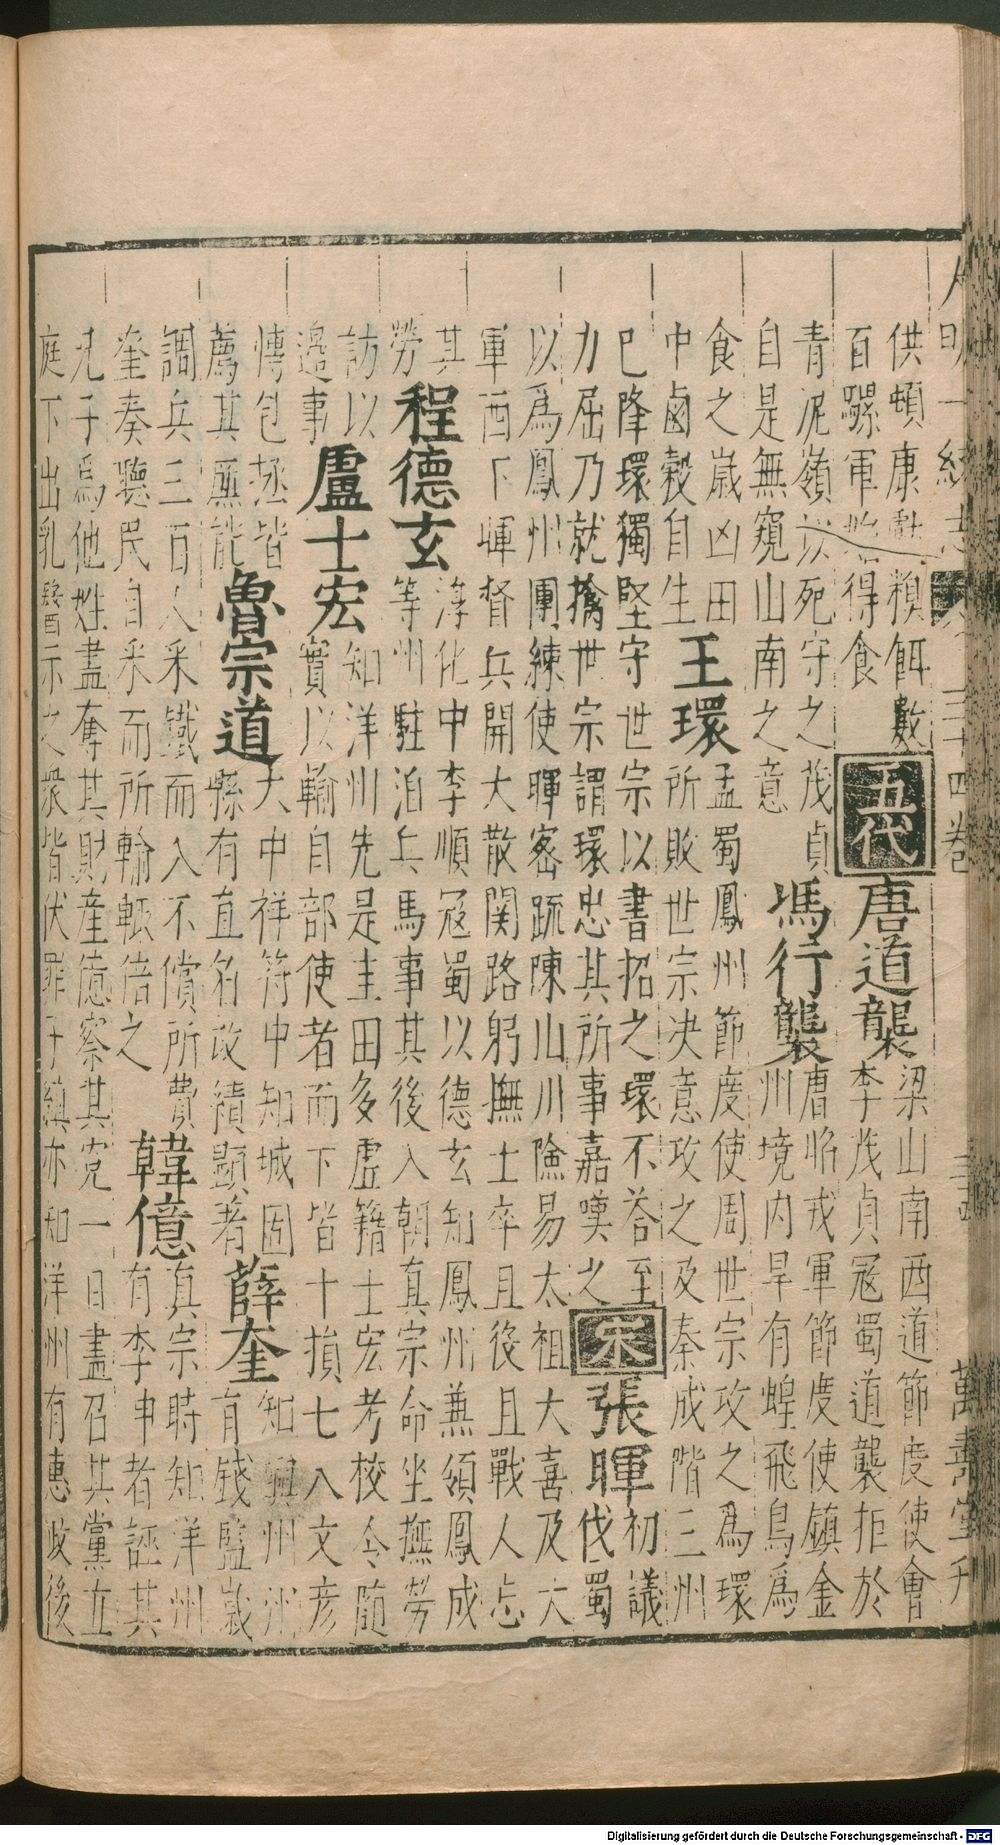 一統志 三十四卷 萬壽堂刋
供頓康獻糗餌數
百騾軍始得食
五代
唐道襲
梁山南西道節度使會
李茂貞冦蜀道襲拒於
青泥嶺以死守之茂貞
自是無窺山南之意
馮行襲
唐昭戎軍節度使鎮金
州境内旱有蝗飛鳥爲
食之嵗凶田
中鹵穀自生
王環
孟蜀鳳州節度使周世宗攻之爲環
所敗世宗决意攻之及秦成階三州
已降環獨堅守世宗以書招之環不荅至
力屈乃就擒世宗謂環忠其所事嘉嘆之
宋
張暉
初議
伐蜀
以爲鳳州團練使暉宻疏陳山川險易太祖大喜及大
軍西下暉督兵開大散関路躬撫士卒且役且戰人忘
其
勞
程德玄
淳化中李順冦蜀以德玄知鳳州兼須鳳成
等州駐泊兵馬事其後入朝真宗命坐撫勞
訪以
邊事
盧士宏
知洋州先是圭田多虚籍士宏考校令隨
實以輸自部使者而下皆十損七八文彦
愽包拯皆
薦其亷能
魯宗道
大中祥符中知城固
縣有直名政績顯著
薛奎
知興州州
有錢監嵗
調兵三百人采鐵而入不償所費
奎奏聽民自采而所輸輒倍之
韓億
真宗時知洋州
有李申者誣其
兄子爲他姓盡奪其財産億察其寃一日盡召其黨立
庭下出乳醫示之衆皆伏罪子縝亦知洋州有惠政後
Digitalisierung gefördert durch die Deutsche Forschungsgemeinschaft - DFG